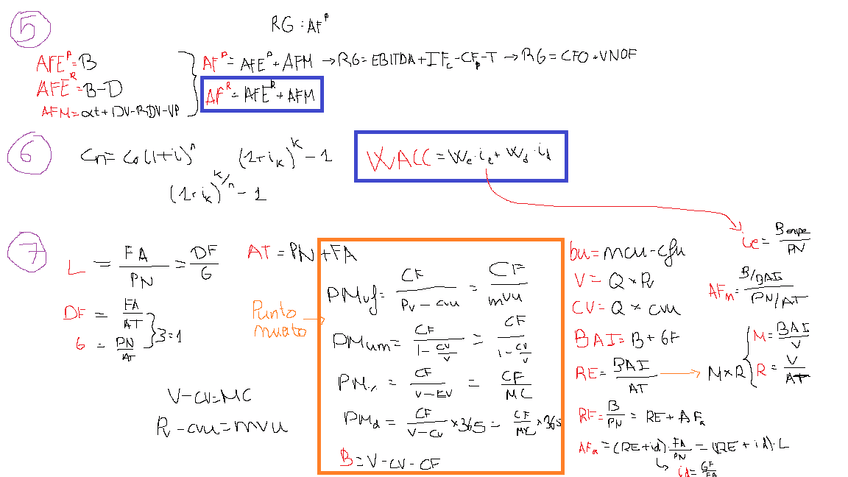 5
RG : AFᴾ
AFEᴾ = B
AFEᴿ = B-D
AFM = αt + DV-RDV-VP
AFᴾ = AFEᴾ + AFM → RG = EBITDA + IF꜀ - CFₚ - T → RG = CFO + VNOF
AFᴿ = AFEᴿ + AFM
6
Cn = C₀(1+i)ⁿ (1+iₖ)ᵏ - 1
(1+iₖ)^k/n - 1
WACC = Wₑ·iₑ + W_d·i_d
ie = B/PN
7
L = FA/PN = DF/G
AT = PN + FA
DF = FA/AT
G = PN/AT
Σ=1
Punto
V-CV=MC
PMvf = CF/Pv-cvu = CF/mvu
PMum = CF/1-CV/V = CF/1-CV/V
CF/V-EV = CF/MC
PMd = CF/V-CV × 365 = CF/MC × 365
B = V-CV-CF
bu = mcu-cfu
V = Q × R
CV = Q × cvu
BAI = B + GF
RE = BAI/AT → M×R
M = BAI/V
R = V/AT
AFm = B/BAI/PN/AT
RF = B/PN = RE + AFₐ
AFₐ = (RE+id)·FA/PN = (RE+id)·L
id = GF/FA